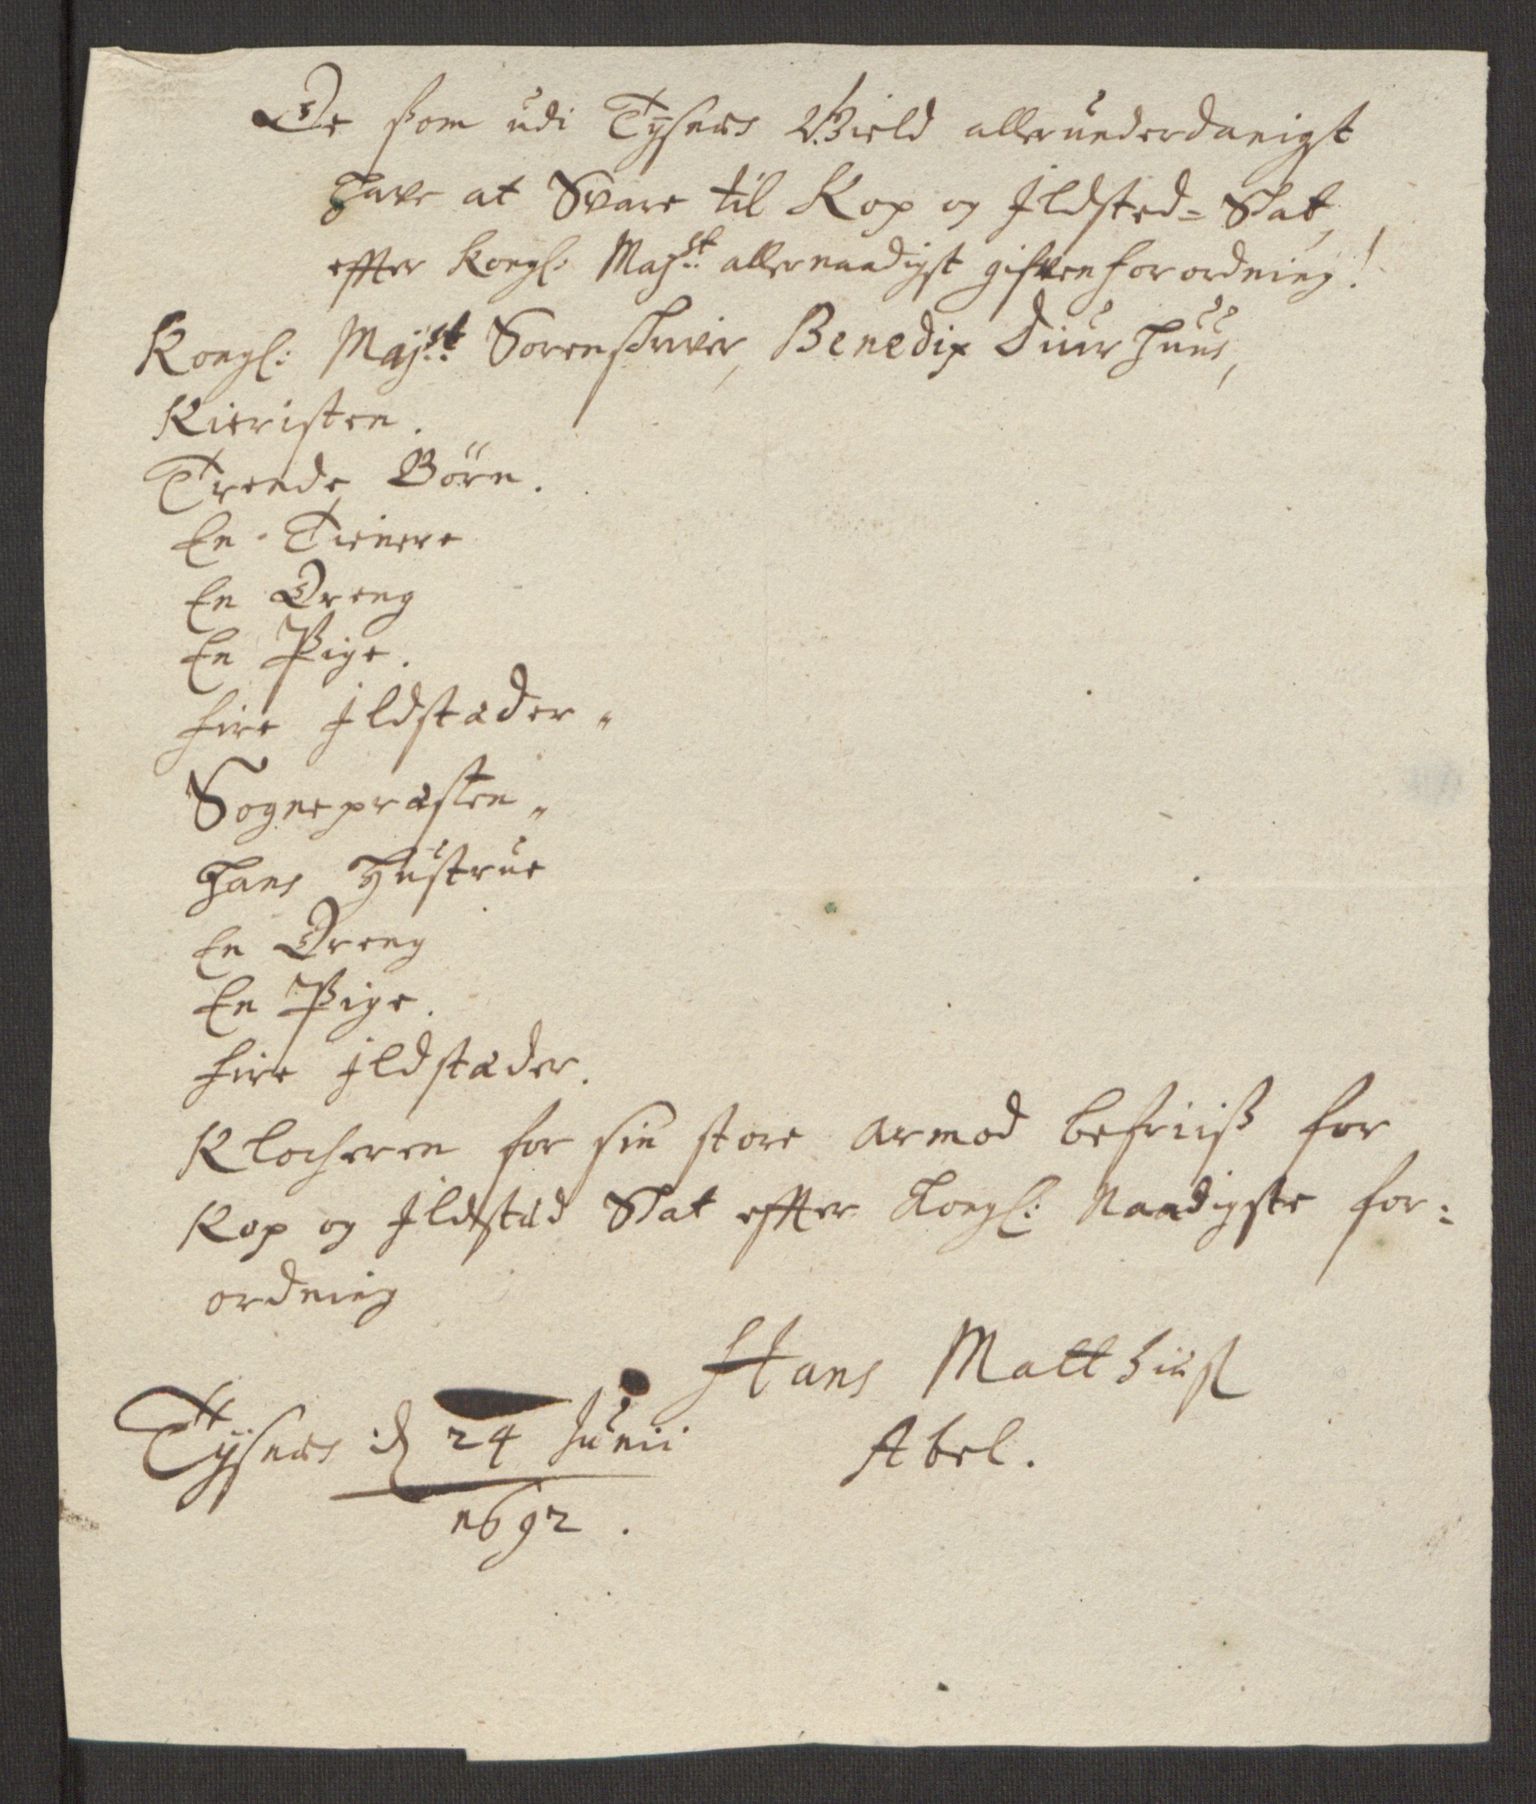 De som udi Tysnæs Gield allerunderdanigst
hafve at Svare til Kop og Ildsted- Skat,
effter Kongl: Majst: allernaadigst gifven forordning!
Kongl: Majst: Sorenschriver, Benedix Diurhuus,
Kieristen.
Trende Börn.
En Tienere
En Dreng
En Pige.
fire Ildstæder
Sognepræsten
Hans Hustrue
En Dreng
En Pige.
fire Ildstæder.
Klocheren for sin store armod befriiß for
Kop og Ildstæd Skat effter Kongl: Naadigste for-
ordning
Hans Matthiæss
Abel.
Tysnæs d 24 Junii
1692.